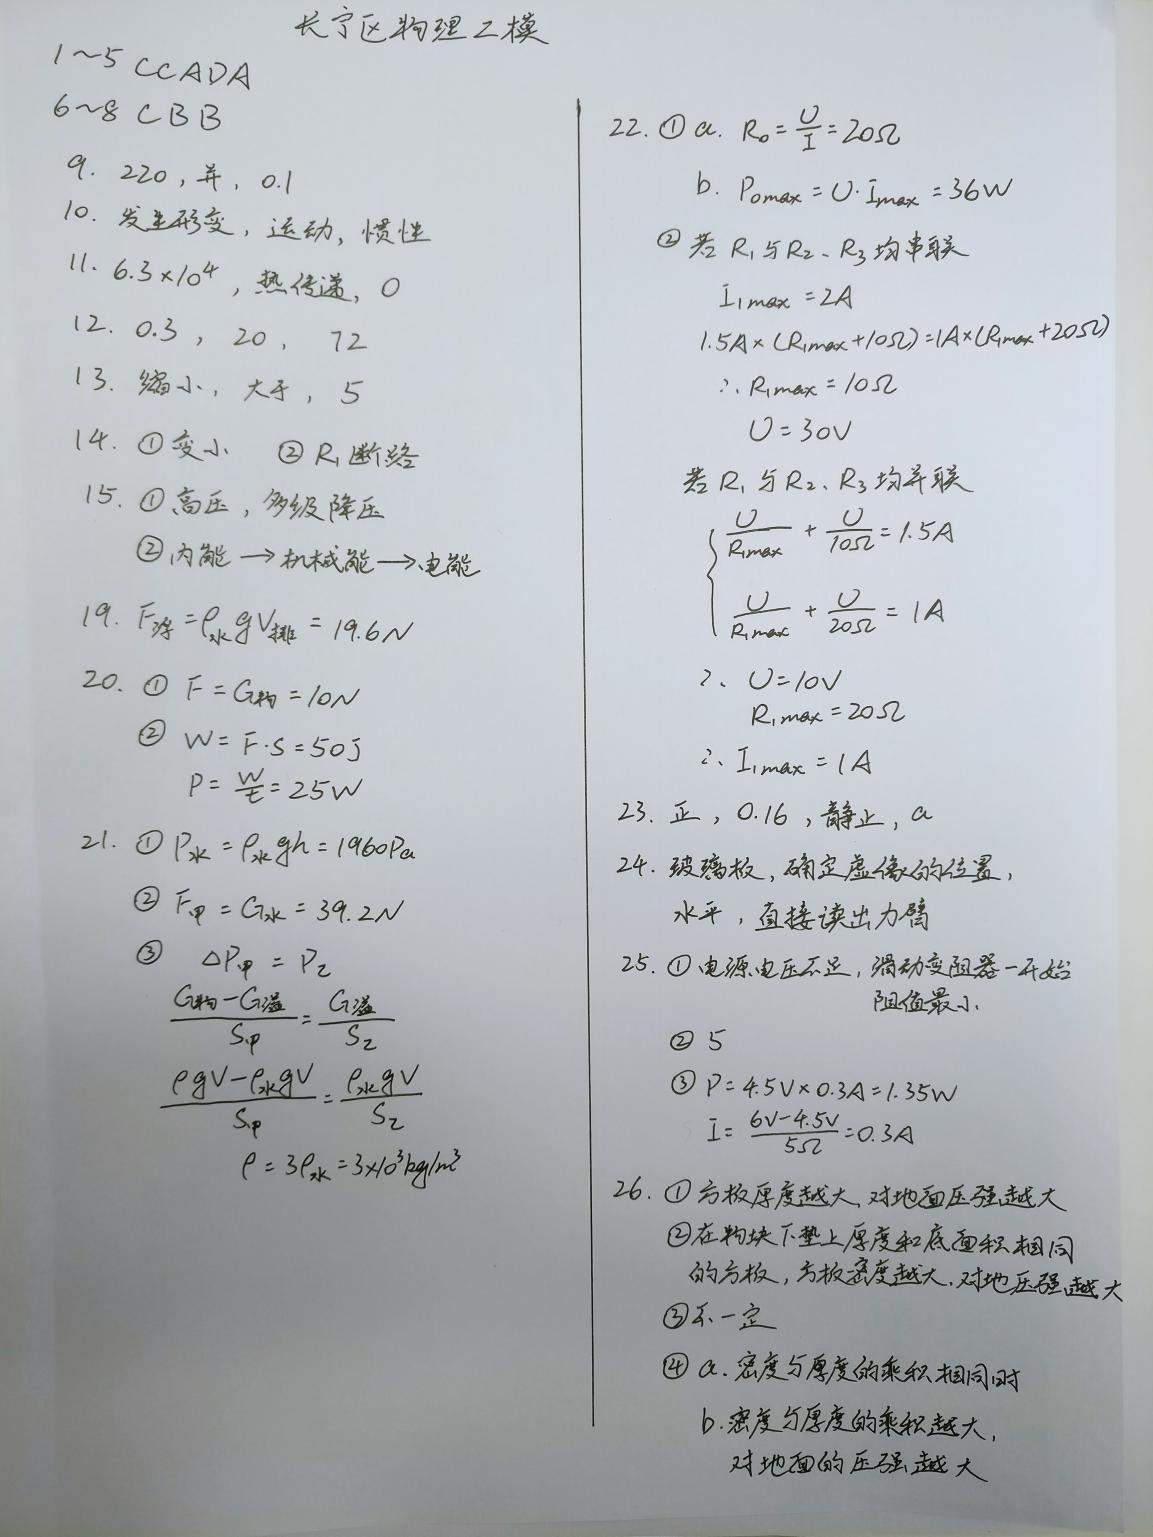 长宁区物理二模
1~5 CCADA
6~8 CBB
9. 220，并，0.1
10. 发生形变，运动，惯性
11. 6.3×10⁴，热传递，0
12. 0.3，20，72
13. 缩小，大于，5
14. ①变小 ②R₁断路
15. ①高压，多级降压
②内能→机械能→电能
19. F浮=ρ水gV排=19.6N
20. ① F=G物=10N
② W=F·S=50J
P=W/t=25W
21. ① P水=ρ水gh=1960Pa
② F甲=G水=39.2N
③ ΔP甲=P乙
(G物-G溢)/S甲=G溢/S乙
(ρgV-ρ水gV)/S甲=ρ水gV/S乙
ρ=3ρ水=3×10³kg/m³
22. ① a. R₀=U/I=20Ω
b. P₀max=U·Imax=36W
② 若R₁与R₂、R₃均串联
I₁max=2A
1.5A×(R₁max+10Ω)=1A×(R₁max+20Ω)
∴ R₁max=10Ω
U=30V
若R₁与R₂、R₃均并联
U/R₁max+U/10Ω=1.5A
U/R₁max+U/20Ω=1A
∴ U=10V
R₁max=20Ω
∴ I₁max=1A
23. 正，0.16，静止，a
24. 玻璃板，确定虚像的位置，
水平，直接读出力臂
25. ①电源电压不足，滑动变阻器一开始
阻值最小
② 5
③ P=4.5V×0.3A=1.35W
I=(6V-4.5V)/5Ω=0.3A
26. ①方板厚度越大，对地面压强越大
②在物块下垫上厚度和底面积相同
的方板，方板密度越大，对地压强越大
③不一定
④ a. 密度与厚度的乘积相同时
b. 密度与厚度的乘积越大，
对地面的压强越大